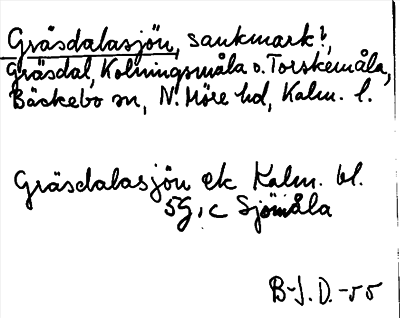 Gräsdalasjön, sankmark?,
Gräsdal, Kolningsmåla o. Torskemåla,
Bäckebo sn, N. Möre hd, Kalm. l.
Gräsdalasjön ek Kalm. bl.
5G, c Sjömåla
B-J. D. -55